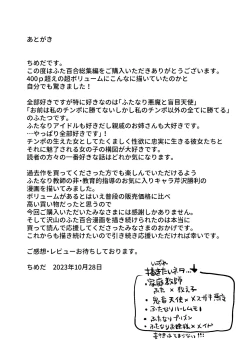 あとがき
ちめだです。
この度はふた百合総集編をご購入いただきありがとうございます。
400p超えの超ボリュームにこんなに描いていたのかと
自分でも驚きました！
全部好きですが特に好きなのは「ふたなり悪魔と盲目天使」
「お前は私のチンポに勝てないしかし私のチンポ以外の全てに勝てる」
のふたつです。
ふたなりアイドルも好きだし親戚のお姉さんも大好きです。
…やっぱり全部好きです！
チンポの生えた女としてたくましく性欲に忠実に生きる彼女たちと
それに魅了される女の子の構図が大好きです。
読者の方々の一番好きな話はどれか気になります。
過去作を買ってくださった方でも楽しんでいただけるよう
ふたなり教師の非・教育的指導のお気に入りキャラ芹沢勝利の
漫画を描いてみました。
ボリュームがあるとはいえ普段の販売価格に比べ
高い買い物だったと思うので
今回ご購入いただいたみなさまには感謝しかありません。
そして沢山のふた百合漫画を描き続けられたのは本当に
みなさまの応援のおかげです。ありがとうございます。
これからも描き続けたいので引き続き応援いただければ幸いです。
ご感想・レビューお待ちしております。
ちめだ　2023年10月28日
いずれ
描きたいネタ…
・家庭教師
×教え子
・ふたなりハーレムモノ
・ふたなりプリズン
・ふたなりお嬢様×メイド